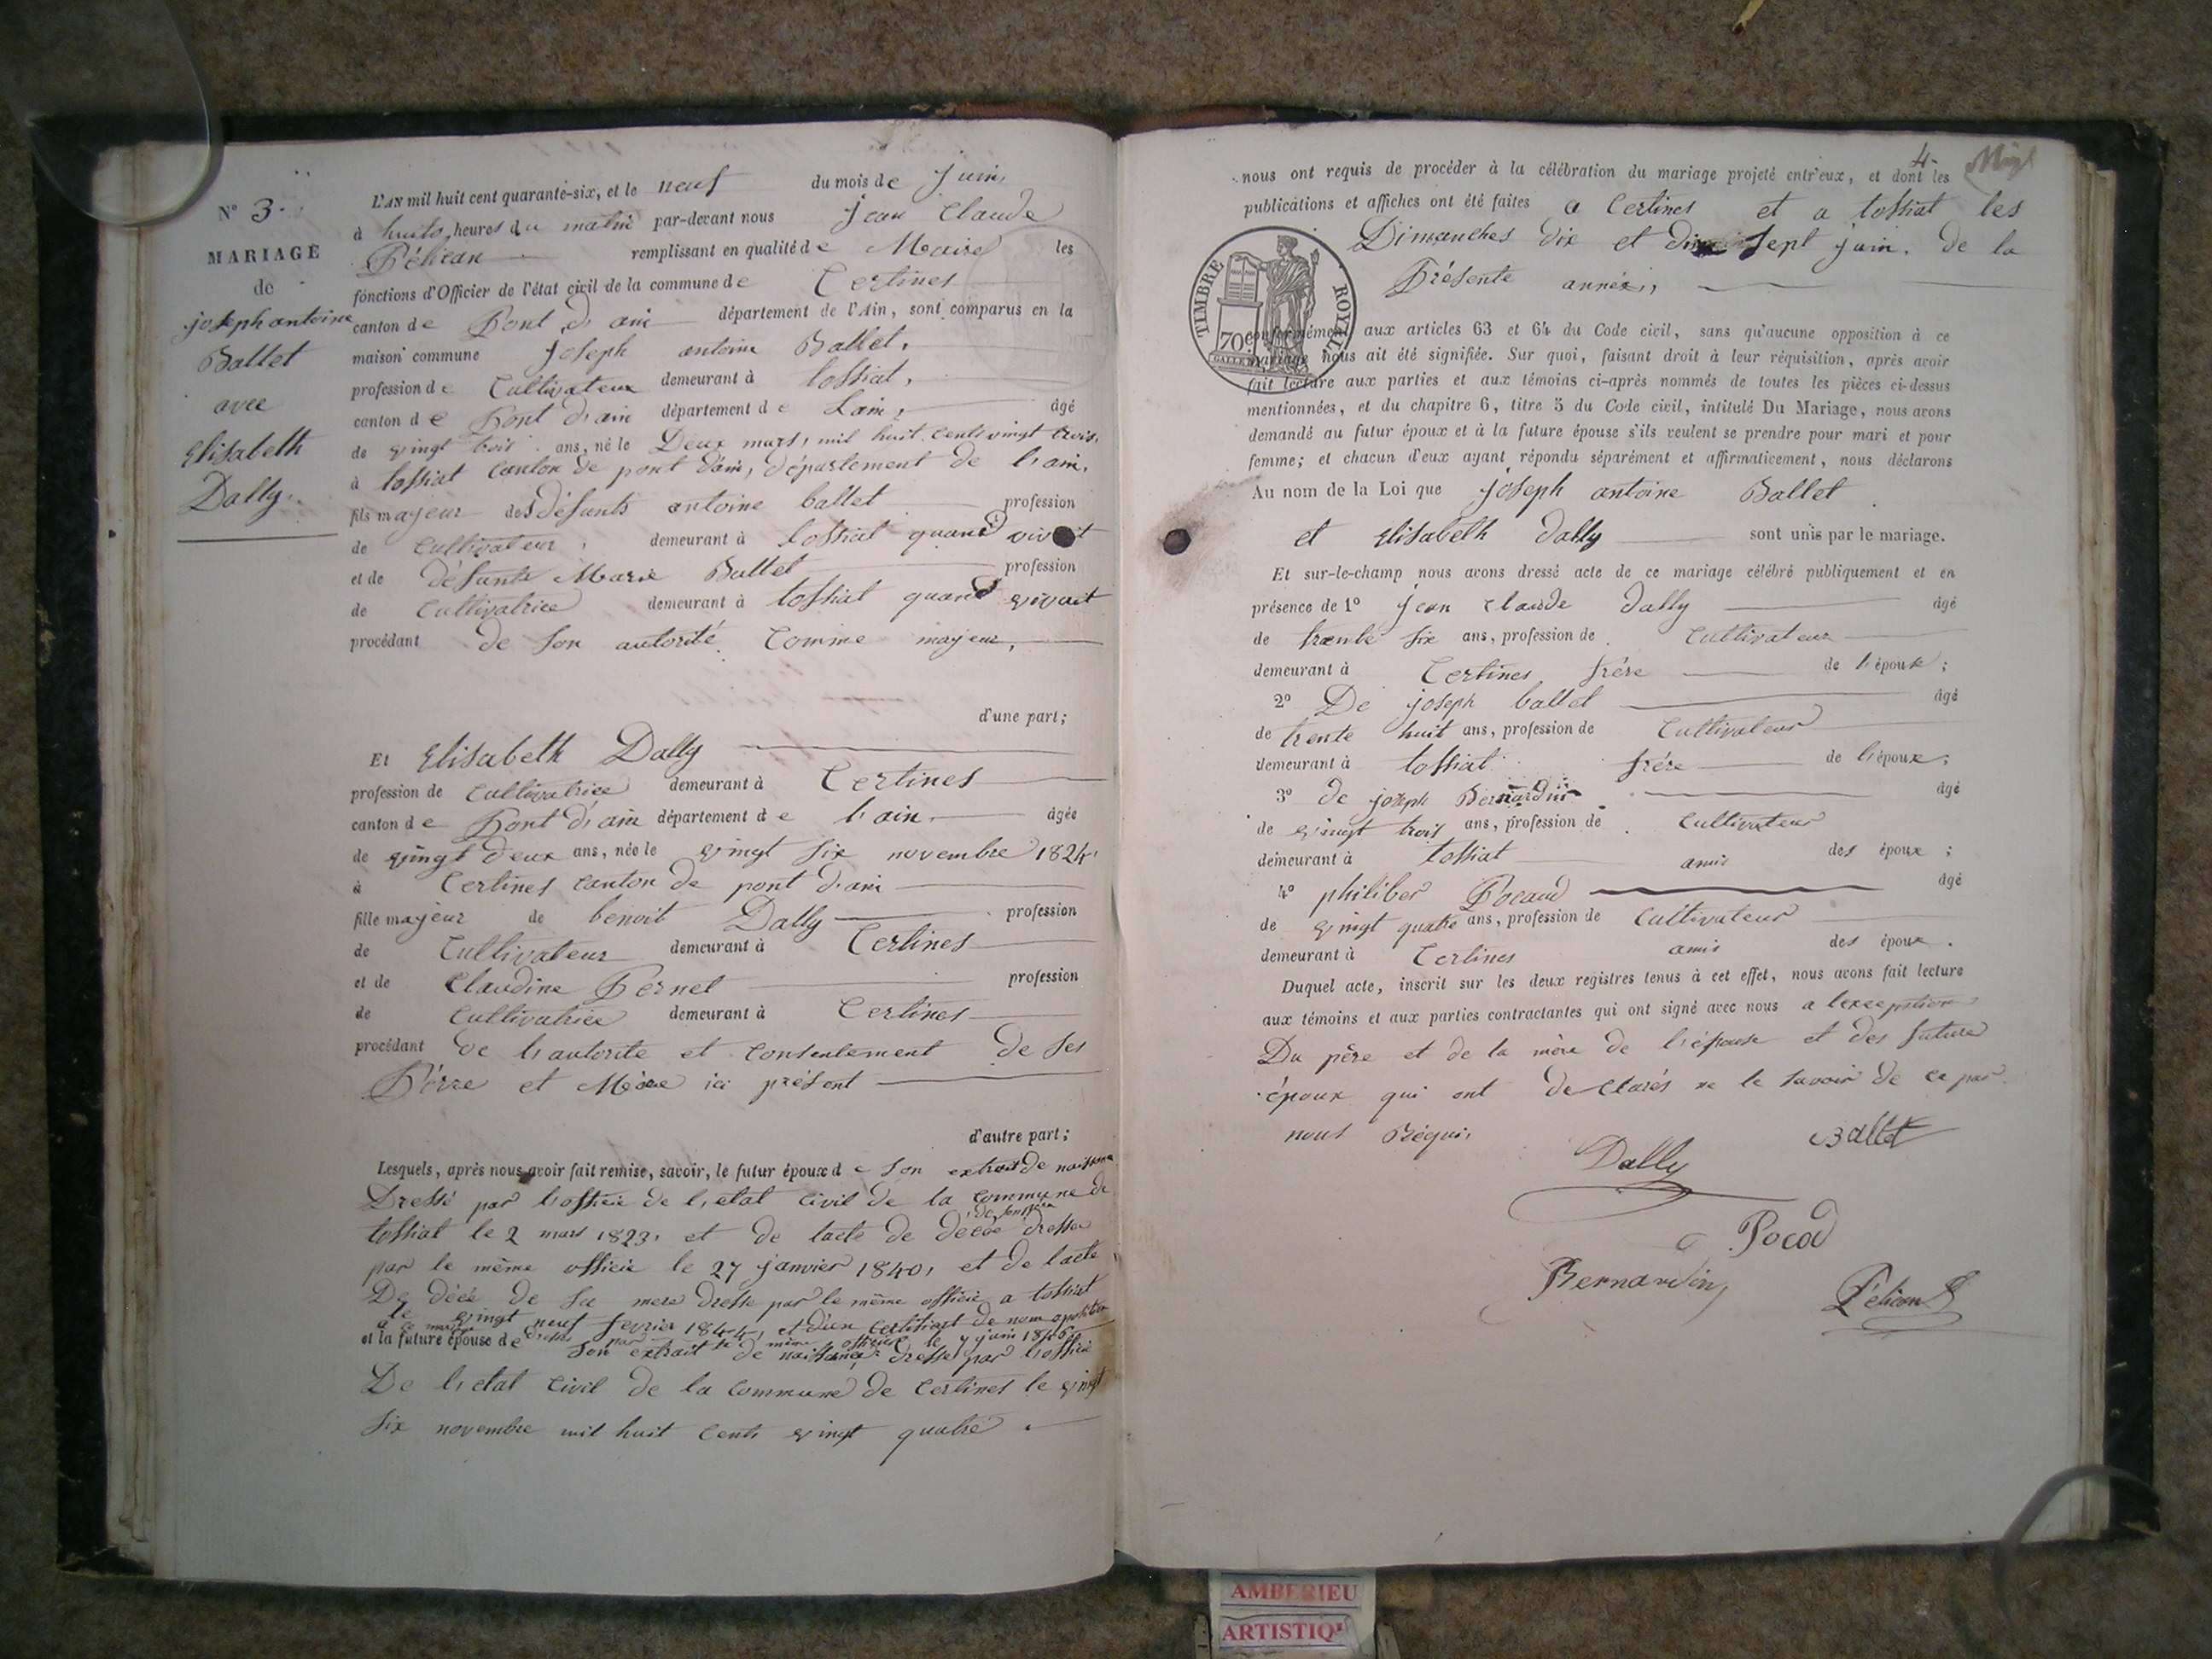 N° 3.
MARIAGE
de
joseph antoine
Ballet
avec
Elisabeth
Dally.
L'AN mil huit cent quarante-six, et le neuf du mois de juin,
à huits heures du matin par-devant nous jean Claude
Pélican remplissant en qualité de Maire les
fonctions d'Officier de l'état civil de la commune de Certines
canton de Pont d'ain département de l'Ain, sont comparus en la
maison commune joseph antoine Ballet,
profession de Cultivateur demeurant à tossiat,
canton de Pont d'ain département de Lain, âgé
de vingt trois ans, né le Deux mars, mil huit cents vingt trois,
à tossiat canton de pont d'ain, département de l'ain,
fils majeur des défunts antoine ballet profession
de cultivateur, demeurant à tossiat quand vivait
et de défunte Marie Ballet profession
de Cultivatrice demeurant à tossiat quand vivait
procédant de son autorité comme majeur,
d'une part;
Et Elisabeth Dally
profession de cultivatrice demeurant à Certines
canton de Pont d'ain département de l'ain, âgée
de vingt deux ans, née le vingt six novembre 1824,
à Certines canton de pont d'ain
fille majeur de benoit Dally profession
de Cultivateur demeurant à Certines
et de Claudine Pernet profession
de Cultivatrice demeurant à Certines
procédant de l'autorite et consentement de ses
Pérre et Mère ici présent
d'autre part;
Lesquels, après nous avoir fait remise, savoir, le futur époux de son extrait de naissance
Dressé par l'officie de l'etat civil de la commune de
de son père
tossiat le 2 mars 1823, et de lacte de décé dresse
par le même officie le 27 janvier 1840, et de lacte
De décé de sa mere dresse par le même officie a tossiat
le vingt neuf fevrier 1844, et d'un certificat de nom opotition
a ce mariage dresse par le même officier le 7 juin 1846
et la future épouse de son extrait de naissance dresse par l'officie
De l'etat civil de la commune de Certines le vingt
six novembre mil huit cents vingt quatre.
4.
nous ont requis de procéder à la célébration du mariage projeté entr'eux, et dont les
publications et affiches ont été faites a Certines et a tossiat les
Dimanches dix et sept juin, de la
Présente année,
TIMBRE ROYAL
70c
conformément aux articles 63 et 64 du Code civil, sans qu'aucune opposition à ce
mariage nous ait été signifiée. Sur quoi, faisant droit à leur réquisition, après avoir
fait lecture aux parties et aux témoins ci-après nommés de toutes les pièces ci-dessus
mentionnées, et du chapitre 6, titre 5 du Code civil, intitulé Du Mariage, nous avons
demandé au futur époux et à la future épouse s'ils veulent se prendre pour mari et pour
femme; et chacun d'eux ayant répondu séparément et affirmativement, nous déclarons
Au nom de la Loi que joseph antoine Ballet
et Elisabeth Dally sont unis par le mariage.
Et sur-le-champ nous avons dressé acte de ce mariage célébré publiquement et en
présence de 1° jean claude Dally âgé
de trente six ans, profession de cultivateur
demeurant à Certines frère de l'épouse;
2° De joseph ballet âgé
de trente huit ans, profession de Cultivateur
demeurant à tossiat frère de l'époux;
3° de joseph Bernardin âgé
de vingt trois ans, profession de Cultivateur
demeurant à tossiat amis des époux;
4° philiber Pocaud âgé
de vingt quatre ans, profession de Cultivateur
demeurant à Certines amis des époux.
Duquel acte, inscrit sur les deux registres tenus à cet effet, nous avons fait lecture
aux témoins et aux parties contractantes qui ont signé avec nous a lexception
Du père et de la mère de l'épouse et des future
époux qui ont declarés ne le savoir de ce par
nous Réqui,
Dally Ballet
Pocod
Bernardin Pélican
AMBERIEU
ARTISTIQ